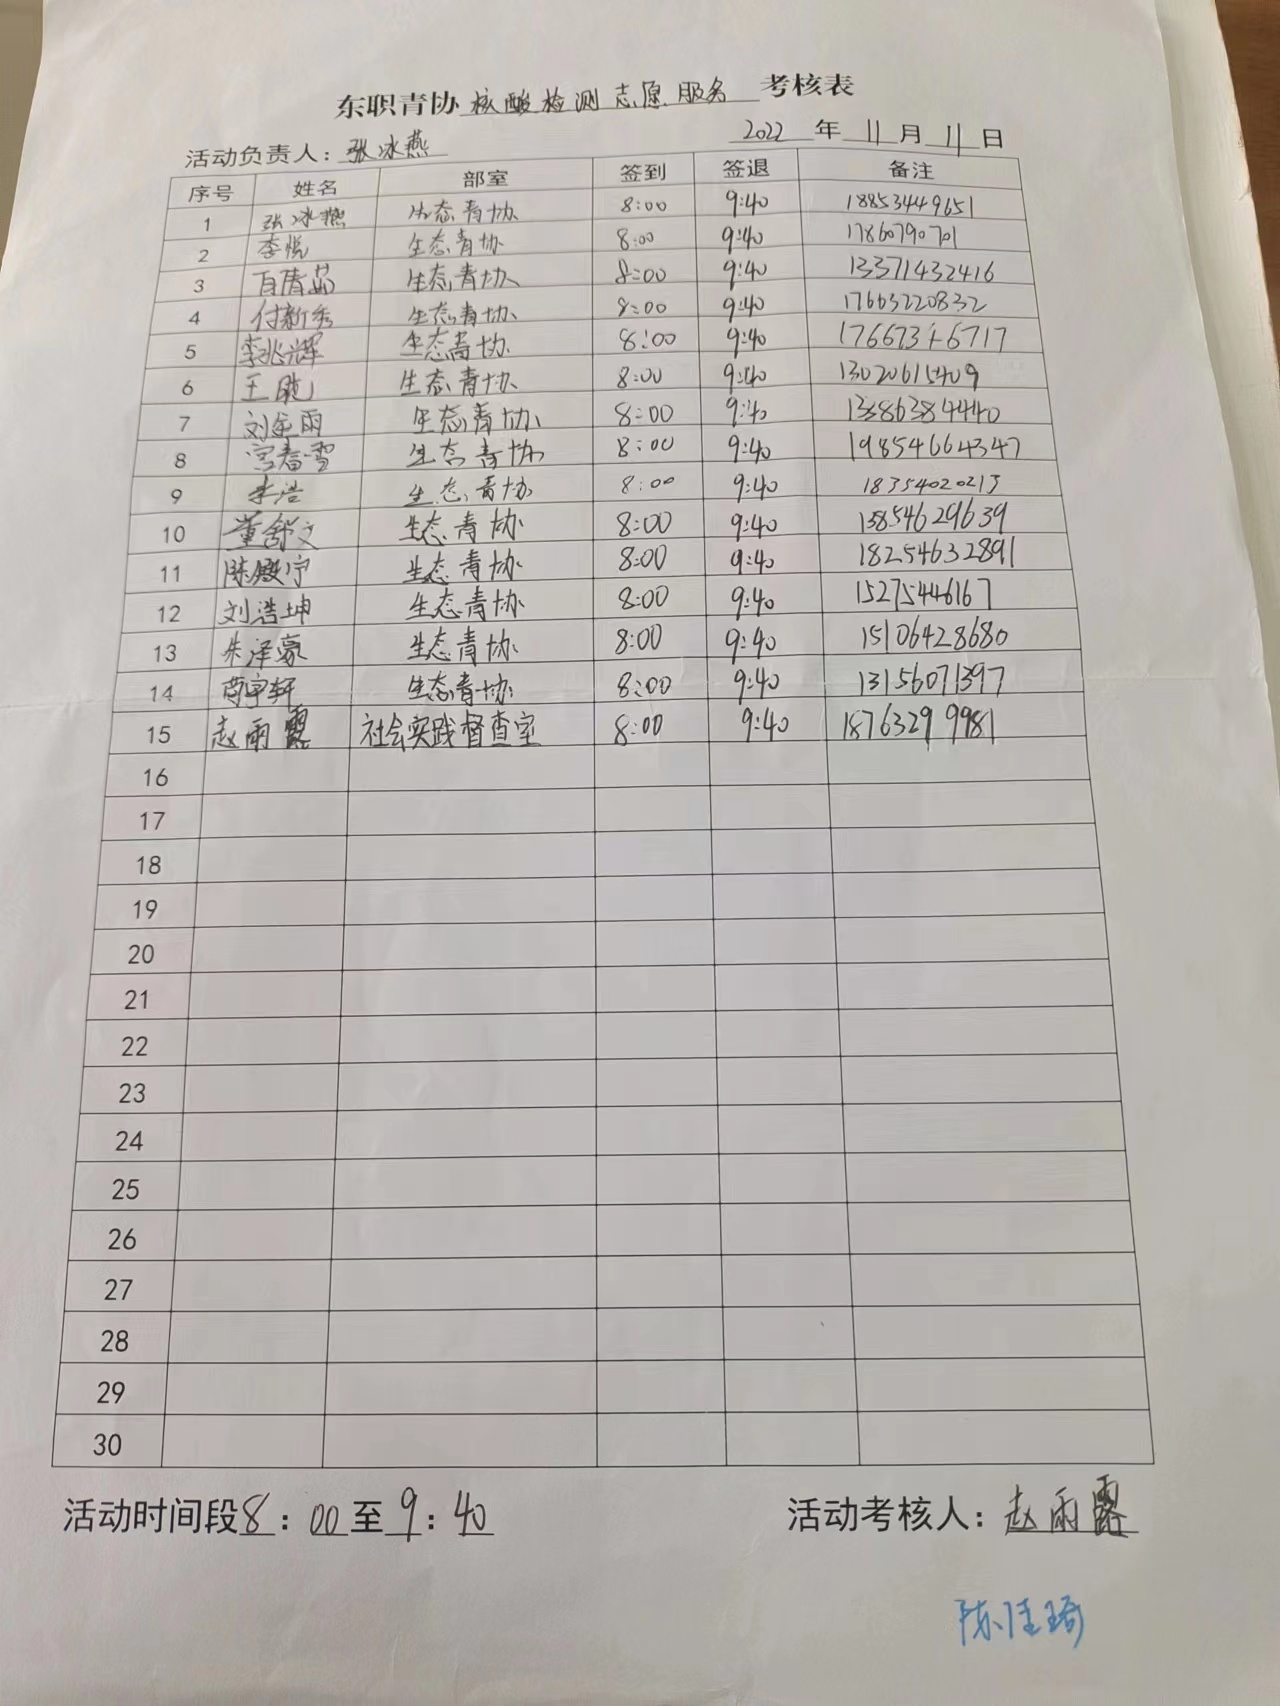 东职青协核酸检测志愿服务考核表
2022年11月11日
活动负责人：张冰燕
序号 姓名 部室 签到 签退 备注
1 张冰燕 生态青协 8:00 9:40 18853449651
2 李悦 生态青协 8:00 9:40 17860790701
3 生态青协 8:00 9:40 13371432416
4 付新秀 生态青协 8:00 9:40 17663220832
5 李兆辉 生态青协 8:00 9:40
6 生态青协 8:00 9:40 13020615409
7 刘金雨 生态青协 8:00 9:40 13386384440
8 宫春雪 生态青协 8:00 9:40 19854664347
9 李浩 生态青协 8:00 9:40 18354020215
10 董舒文 生态青协 8:00 9:40 13854629639
11 生态青协 8:00 9:40 18254632891
12 刘浩坤 生态青协 8:00 9:40 15275446167
13 朱泽豪 生态青协 8:00 9:40 15106428680
14 苟宇轩 生态青协 8:00 9:40 13156071397
15 赵雨露 社会实践督查室 8:00 9:40 18763299981
16
17
18
19
20
21
22
23
24
25
26
27
28
29
30
活动时间段8：00至9：40 活动考核人：赵雨露
陈佳琦